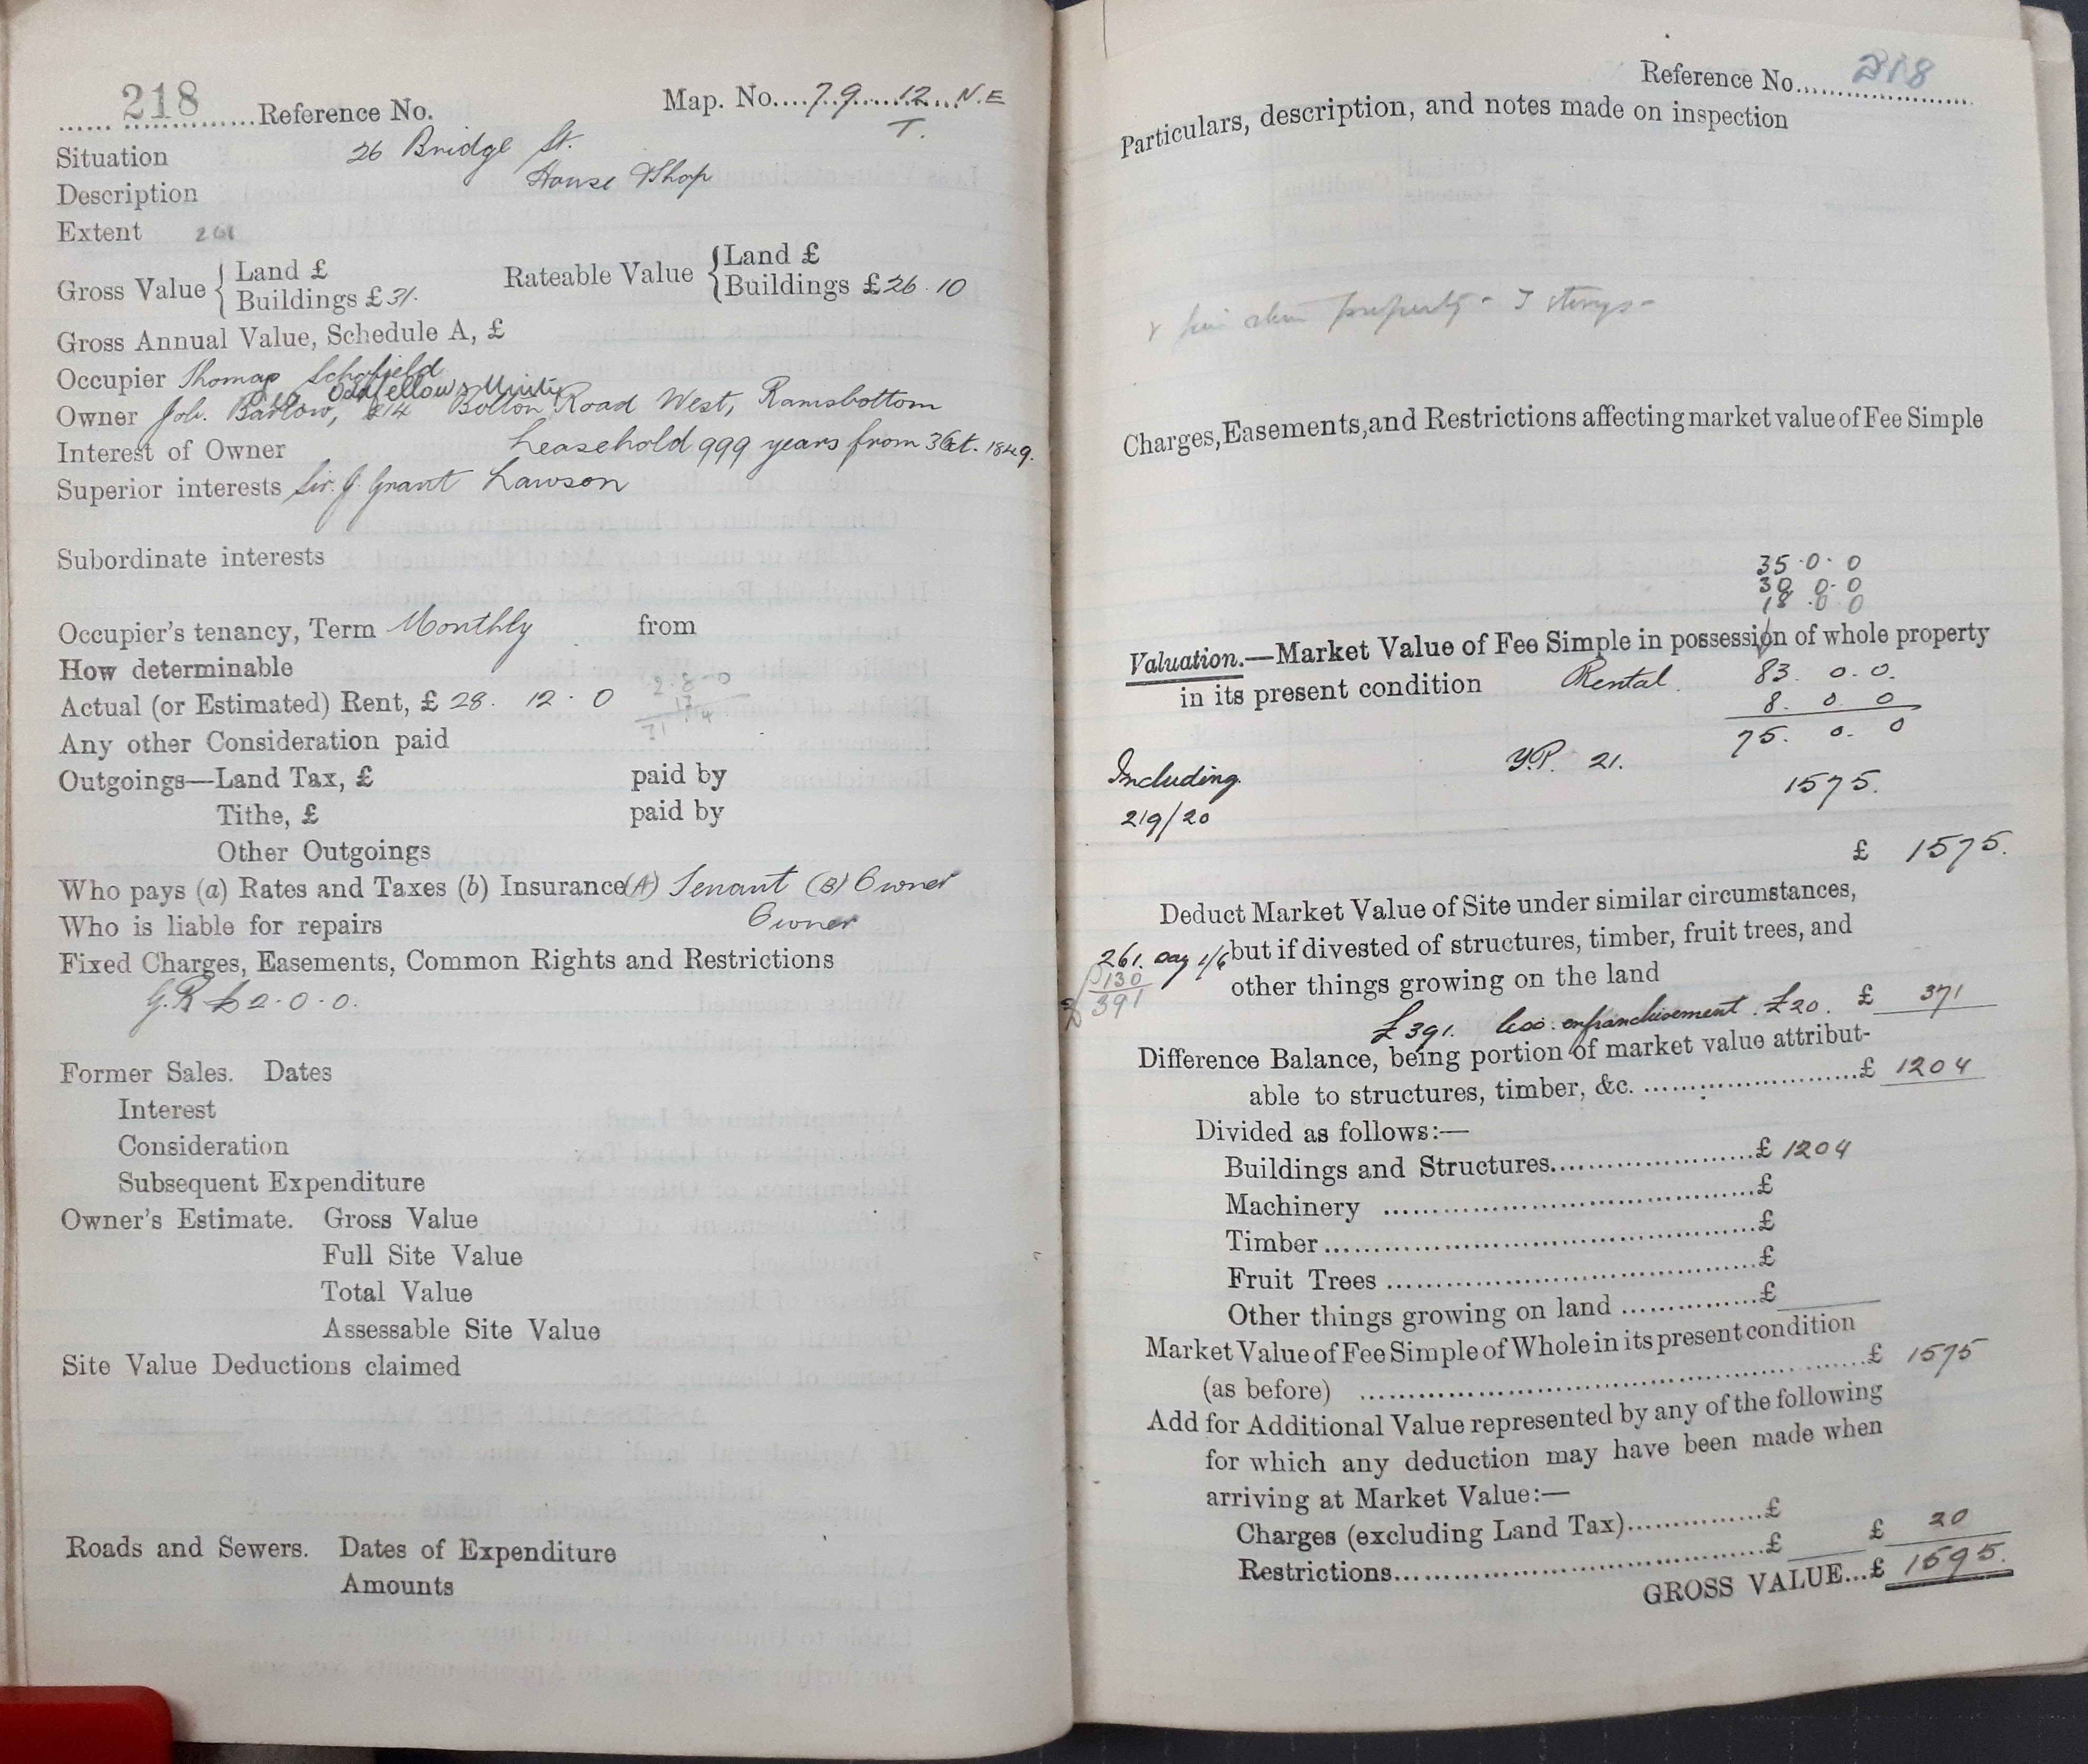 218 Reference No. Map. No. 79 12 N.E
T.
Situation 26 Bridge St.
Description House & Shop
Extent 261
Gross Value { Land £
Buildings £ 31.
Rateable Value { Land £
Buildings £ 26. 10
Gross Annual Value, Schedule A, £
Occupier Thomas Schofield
Oddfellows Unity
Owner Job. Barlow, 214 Bolton Road West, Ramsbottom
Interest of Owner Leasehold 999 years from 3 Oct. 1849.
Superior interests Sir. J. Grant Lawson
Subordinate interests
Occupier's tenancy, Term Monthly from
How determinable
Actual (or Estimated) Rent, £ 28. 12. 0
2.8-0
Any other Consideration paid
Outgoings—Land Tax, £ paid by
Tithe, £ paid by
Other Outgoings
Who pays (a) Rates and Taxes (b) Insurance (A) Tenant (B) Owner
Who is liable for repairs Owner
Fixed Charges, Easements, Common Rights and Restrictions
G.R £2-0-0.
Former Sales. Dates
Interest
Consideration
Subsequent Expenditure
Owner's Estimate. Gross Value
Full Site Value
Total Value
Assessable Site Value
Site Value Deductions claimed
Roads and Sewers. Dates of Expenditure
Amounts
Reference No. 218
Particulars, description, and notes made on inspection
property - 3 storeys -
Charges, Easements, and Restrictions affecting market value of Fee Simple
35.0.0
30 0.0
18.0 0
Valuation.—Market Value of Fee Simple in possession of whole property
in its present condition Rental 83. 0.0.
8. 0 0
75. 0. 0
Including Y.P. 21. 1575.
219/20
£ 1575.
Deduct Market Value of Site under similar circumstances,
261. Say 1/6 but if divested of structures, timber, fruit trees, and
130 other things growing on the land
£ 391
£391. less enfranchisement. £20. £ 371
Difference Balance, being portion of market value attribut-
able to structures, timber, &c. £ 1204
Divided as follows:—
Buildings and Structures £ 1204
Machinery £
Timber £
Fruit Trees £
Other things growing on land £
Market Value of Fee Simple of Whole in its present condition
(as before) £ 1575
Add for Additional Value represented by any of the following
for which any deduction may have been made when
arriving at Market Value:—
Charges (excluding Land Tax) £
Restrictions £ £ 20
GROSS VALUE...£ 1595.